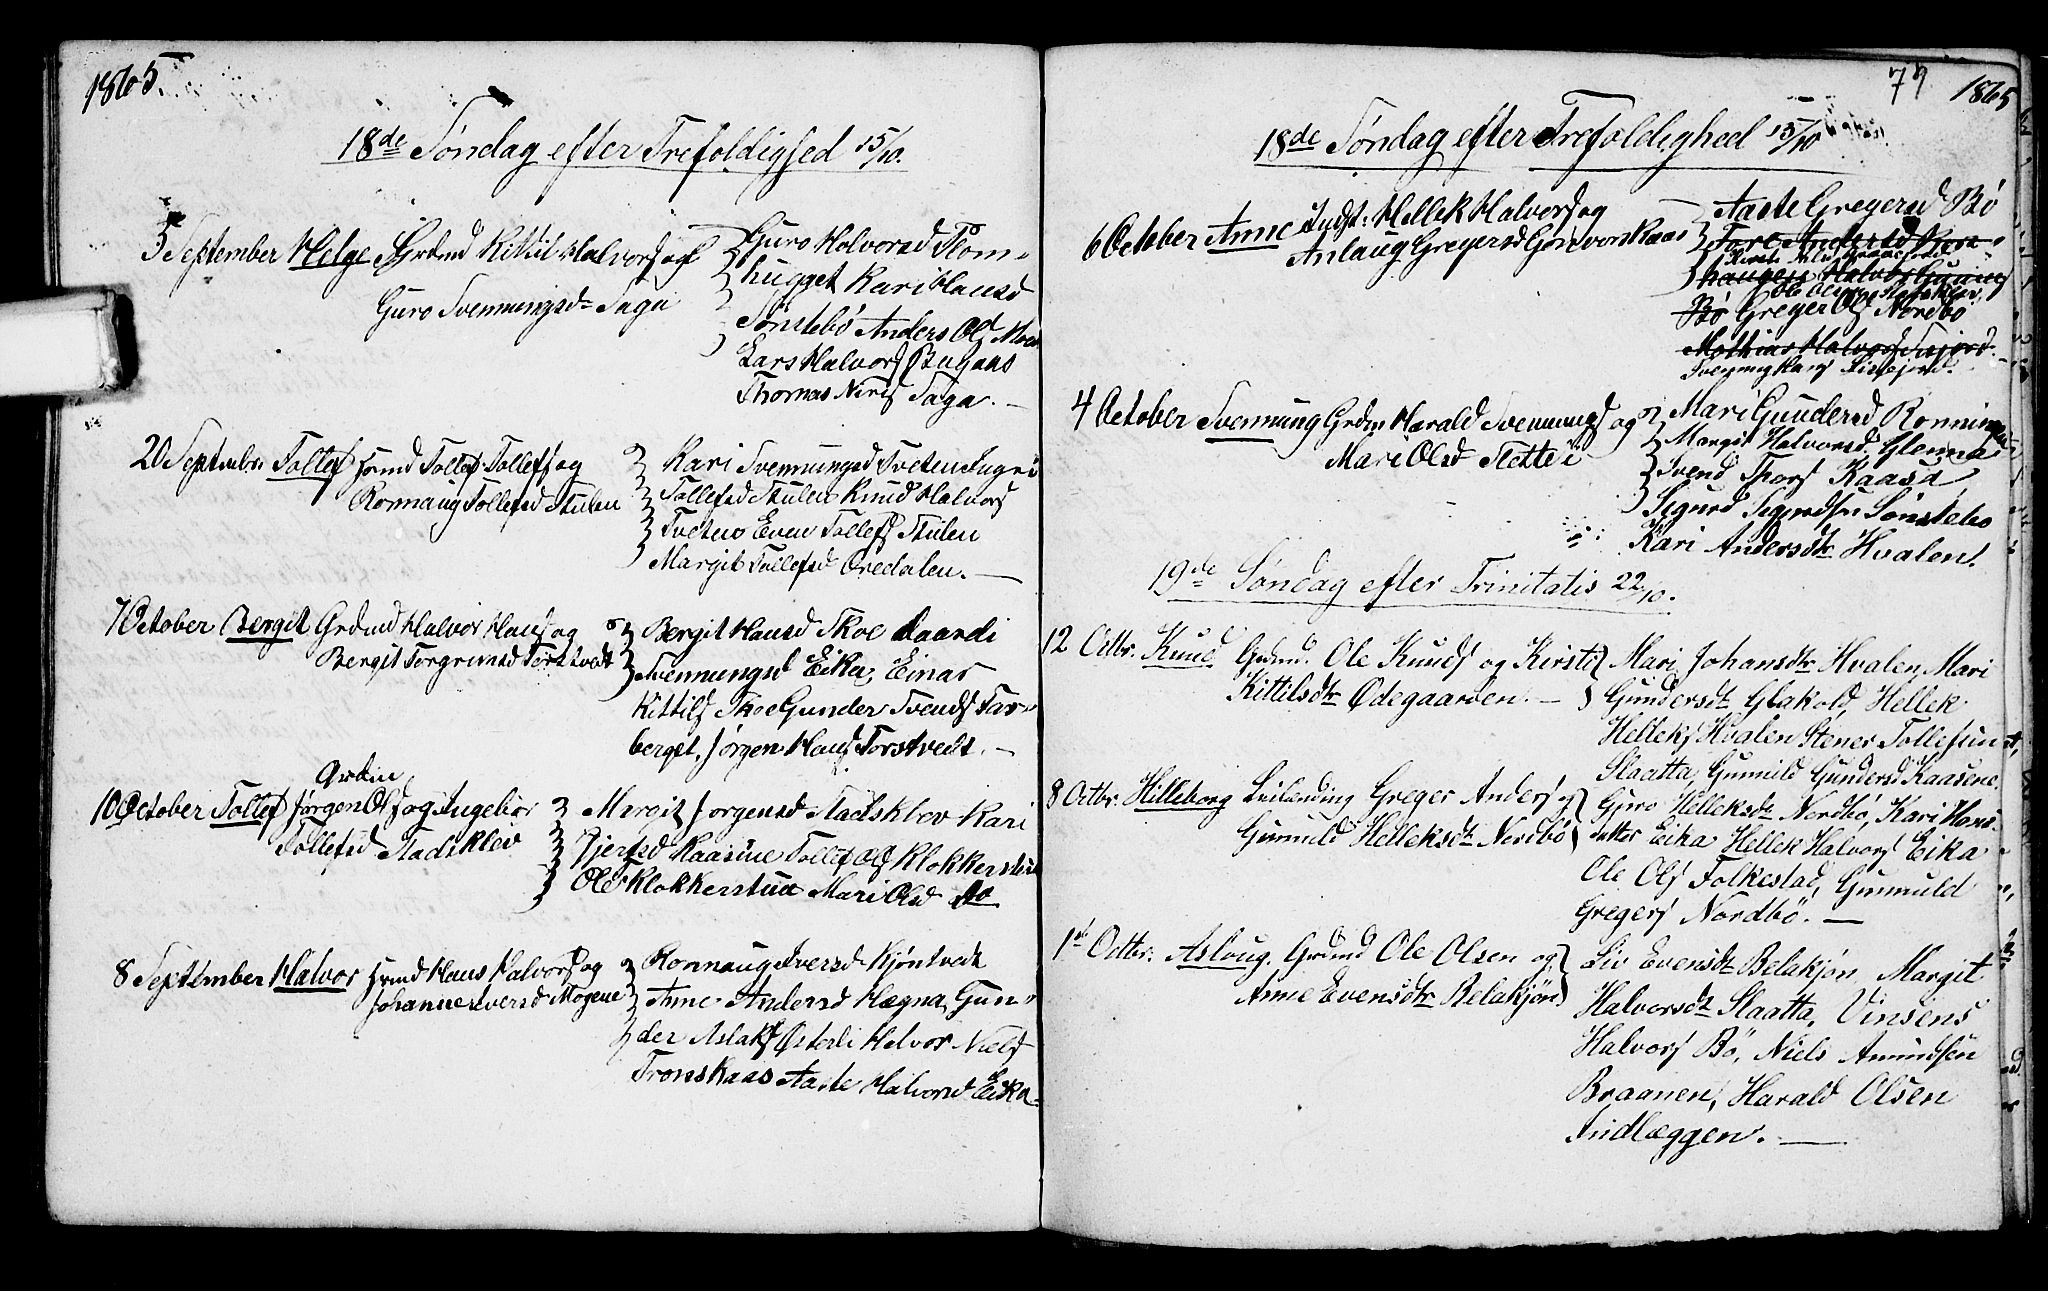 1865.
18de Söndag efter Trefoldighed 15/10.
5 September Helge Grdmd Kittil Halvors og
Guro Svennungsd Saga
Guro Halvorsd Flom-
hugget Kari Hansd
Sönstebö Anders Ols Moen
Lars Halvors
Thomas Niels Saga.
20 Septmbr. Tollef Hsmd Tollef Tollefs og
Ronnaug Tollefsd Stulen
Kari Svennungsd Tveten Ingri
Tollefsd Stulen Knud Halvors
Tveten Even Tollefs Stulen
Margit Tollefsd Öredalen.
7 October Bergit Grdmd Halvor Hans og
Bergit Torgrimsd Torstvedt
Bergit Hansd Skoe Taardi
Svennungsd Eika, Einar
Kittils Skoe Gunder Svends Tor-
berget, Jörgen Hans Torstvedt.
Grdm
10 October Tollef Jörgen Ols og Ingebor
Tollefsd Stadskleiv
Margit Jorgensd Stadsklev Kari
Gjertsd Kaasine Tollef Ols Klokkerstuen
Ole Klokkerstuen Mari Olsd do
8 September Halvor Hsmd Hans Halvors og
Johanne Iversd Mogene
Ronnaug Iversd Kjöntvedt
Anne Andersd Hægna, Gun-
der Aslaks Österli Halvor Niels
Tronskaas Aaste Halvorsd Eika
79 1865
18de Söndag efter Trefoldighed 15/10
6 October Anne Indst: Hellek Halvors og
Anlaug Gregersd Gonvorskaas
Aaste Gregersd Bö
Tore Andersd
haugen Halvor Gunnes
Bö Greger Ols Nordbö
Mathias Halvors
Svennung Hans Lifjord.
4 October Svennung Grdm Harald Svennungs og
Mari Olsd Slette
Mari Gundersd Ronningen
Margit Halvorsd. Glenna
Svend Thors Kaasa
Sigurd Sigurdsen Sönstebö
Kari Andersdtr Hvalen.
19de Söndag efter Trinitatis 22/10.
12 Octbr. Knud. Grdmd. Ole Knuds og Kirsti
Kittilsdtr Ödegaarden.
Mari Johansdtr Hvalen, Mari
Gundersdt Glakold, Hellek
Helleks Hvalen Stener Tollefsen
Slaatta, Gunnild Gundersd Kaasene.
8 Octbr. Hilleborg Leilænding Greger Anders og
Gunnuld Helleksdt Nordbö
Guro Helleksdt Nordbö, Kari Hans-
datter Eika Hellek Halvors Eika
Ole Ols Folkestad, Gunnuld
Gregers Nordbö.
1st Octbr. Aslaug. Grdmd Ole Olsen og
Anne Evensdtr Belakjön
Liv Evensdt Belakjön, Margit
Halvorsdt Slaatta, Vinsens
Halvors Bö, Niels Amundsen
Braanen, Harald Olsen
Indlæggen.